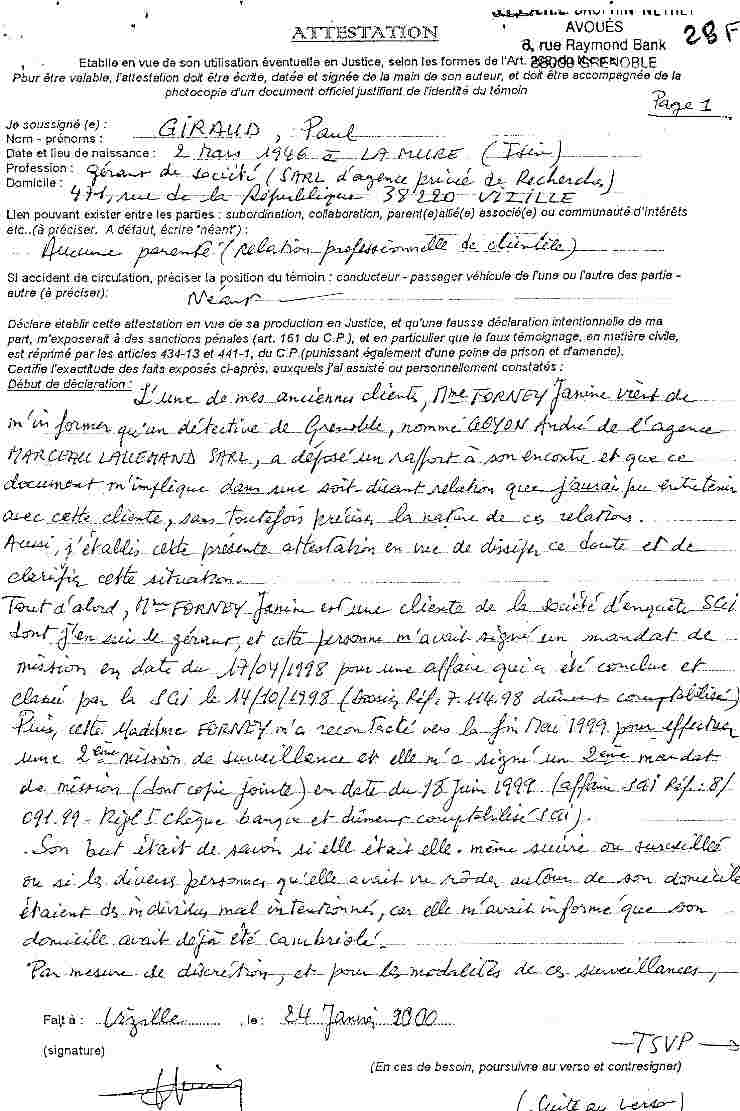 AVOUÉS
ATTESTATION
8, rue Raymond Bank
28 F
Etablie en vue de son utilisation éventuelle en Justice, selon les formes de l'Art.
38000 GRENOBLE
Pour être valable, l'attestation doit être écrite, datée et signée de la main de son auteur, et doit être accompagnée de la
photocopie d'un document officiel justifiant de l'identité du témoin
Page 1
Je soussigné (e) : GIRAUD, Paul
Nom - prénoms :
Date et lieu de naissance : 2 Mars 1946 à LA MURE (Isère)
Profession : Gérant de société (SARL d'agence privée de Recherches)
Domicile : 471, rue de la République 38220 VIZILLE
Lien pouvant exister entre les parties : subordination, collaboration, parent(e)allié(e) associé(e) ou communauté d'intérêts
etc..(à préciser. A défaut, écrire "néant") :
Aucune parenté (relation professionnelle de clientèle)
Si accident de circulation, préciser la position du témoin : conducteur - passager véhicule de l'une ou l'autre des partie -
autre (à préciser): Néant
Déclare établir cette attestation en vue de sa production en Justice, et qu'une fausse déclaration intentionnelle de ma
part, m'exposerait à des sanctions pénales (art. 161 du C.P.), et en particulier que le faux témoignage, en matière civile,
est réprimé par les articles 434-13 et 441-1, du C.P.(punissant également d'une peine de prison et d'amende).
Certifie l'exactitude des faits exposés ci-après, auxquels j'ai assisté ou personnellement constatés :
Début de déclaration : L'une de mes anciennes clients, Mme FORNEY Janine vient de
m'informer qu'un détective de Grenoble, nommé GOYON André de l'agence
MARCEAU LALLEMAND SARL, a déposé un rapport à son encontre et que ce
document m'implique dans une soit-disant relation que j'aurai pu entretenir
avec cette cliente, sans toutefois préciser la nature de ces relations.
Aussi, j'établis cette présente attestation en vue de dissiper ce doute et de
clarifier cette situation.
Tout d'abord, Mme FORNEY Janine est une cliente de la société d'enquête SCI
dont j'en suis le gérant, et cette personne m'avait signé un mandat de
mission en date du 17/04/1998 pour une affaire qui a été conclue et
classée par la SCI le 14/10/1998 (dossier Réf. 7.114.98 dûment comptabilisé)
Puis, cette Madame FORNEY m'a recontacté vers la fin Mai 1999 pour effectuer
une 2ème mission de surveillance et elle m'a signé un 2ème mandat
de mission (dont copie jointe) en date du 18 Juin 1999 (affaire SCI Réf : 8/
091.99 - Réglé chèque banque et dûment comptabilisé SCI).
Son but était de savoir si elle était elle-même suivie ou surveillée
ou si les diverses personnes qu'elle avait vu rôder autour de son domicile
étaient des individus mal intentionnés, car elle m'avait informé que son
domicile avait déjà été cambriolé.
Par mesure de discrétion, et pour les modalités de ces surveillances,
Fait à : Vizille , le : 24 Janvier 2000
(signature)
TSVP
(En cas de besoin, poursuivre au verso et contresigner)
(Suite au verso)